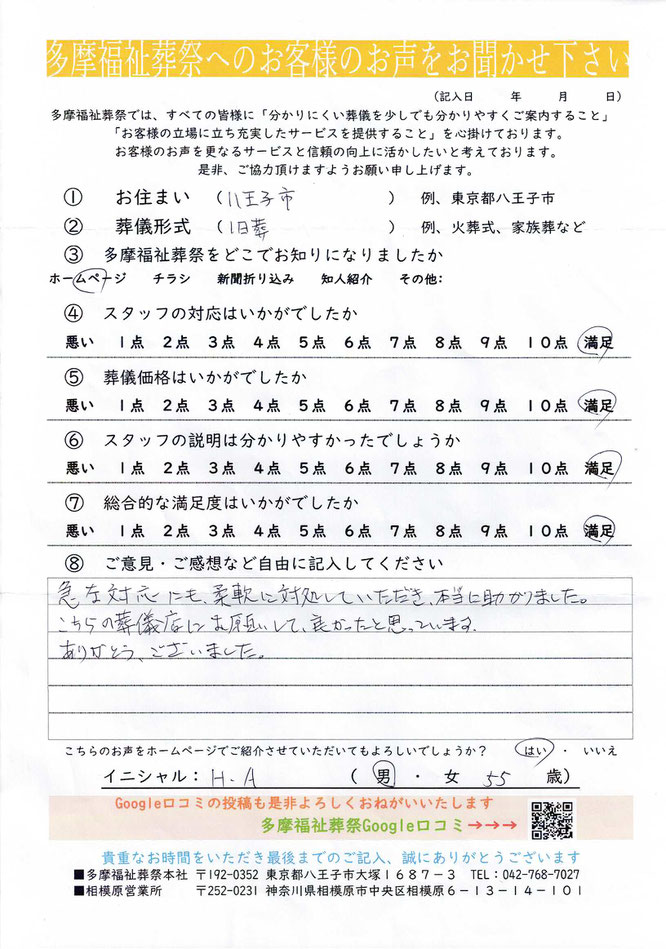 多摩福祉葬祭へのお客様のお声をお聞かせ下さい
（記入日　　年　　月　　日）
多摩福祉葬祭では、すべての皆様に「分かりにくい葬儀を少しでも分かりやすくご案内すること」
「お客様の立場に立ち充実したサービスを提供すること」を心掛けております。
お客様のお声を更なるサービスと信頼の向上に活かしたいと考えております。
是非、ご協力頂けますようお願い申し上げます。
① お住まい （八王子市　　） 例、東京都八王子市
② 葬儀形式 （1日葬　　） 例、火葬式、家族葬など
③ 多摩福祉葬祭をどこでお知りになりましたか
ホームページ チラシ 新聞折り込み 知人紹介 その他：
④ スタッフの対応はいかがでしたか
悪い １点 ２点 ３点 ４点 ５点 ６点 ７点 ８点 ９点 １０点 満足
⑤ 葬儀価格はいかがでしたか
悪い １点 ２点 ３点 ４点 ５点 ６点 ７点 ８点 ９点 １０点 満足
⑥ スタッフの説明は分かりやすかったでしょうか
悪い １点 ２点 ３点 ４点 ５点 ６点 ７点 ８点 ９点 １０点 満足
⑦ 総合的な満足度はいかがでしたか
悪い １点 ２点 ３点 ４点 ５点 ６点 ７点 ８点 ９点 １０点 満足
⑧ ご意見・ご感想など自由に記入してください
急な対応にも、柔軟に対処していただき、本当に助かりました。
こちらの葬儀店にお願いして、良かったと思っています。
ありがとう、ございました。
こちらのお声をホームページでご紹介させていただいてもよろしいでしょうか？ はい ・ いいえ
イニシャル：H.A （ 男 ・ 女 55 歳）
Google口コミの投稿も是非よろしくおねがいいたします
多摩福祉葬祭Google口コミ→→→
貴重なお時間をいただき最後までのご記入、誠にありがとうございます
■多摩福祉葬祭本社 〒192-0352 東京都八王子市大塚１６８７－３ TEL：042-768-7027
■相模原営業所 〒252-0231 神奈川県相模原市中央区相模原６－１３－１４－１０１